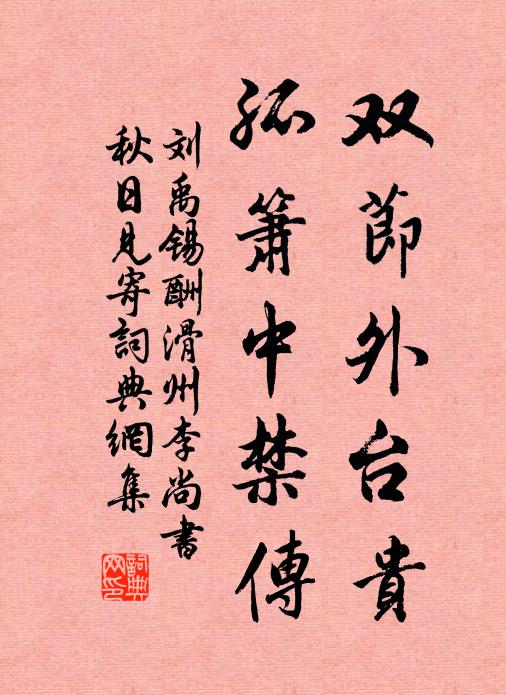 双節外台貴
孤簫中禁傳
刘禹锡酬滑州李尚書
秋日見寄詞典網集
詞典网印